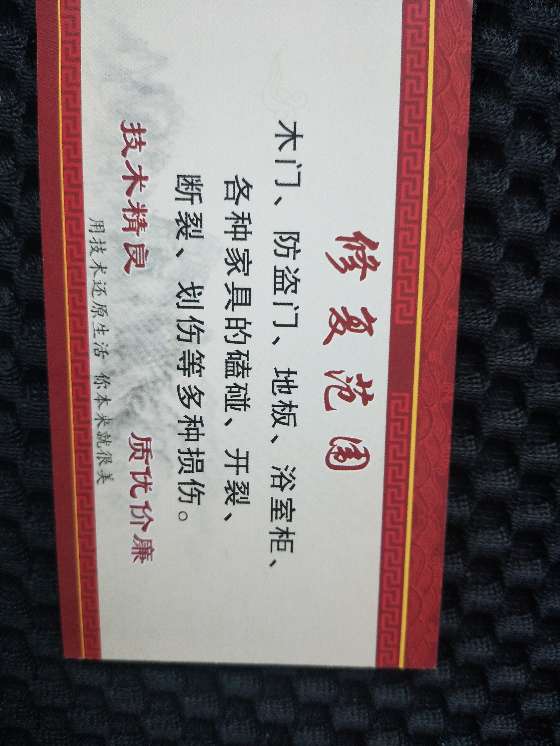 修复范围
木门、防盗门、地板、浴室柜、
各种家具的磕碰、开裂、
断裂、划伤等多种损伤。
技术精良 质优价廉
用技术还原生活 你本来就很美